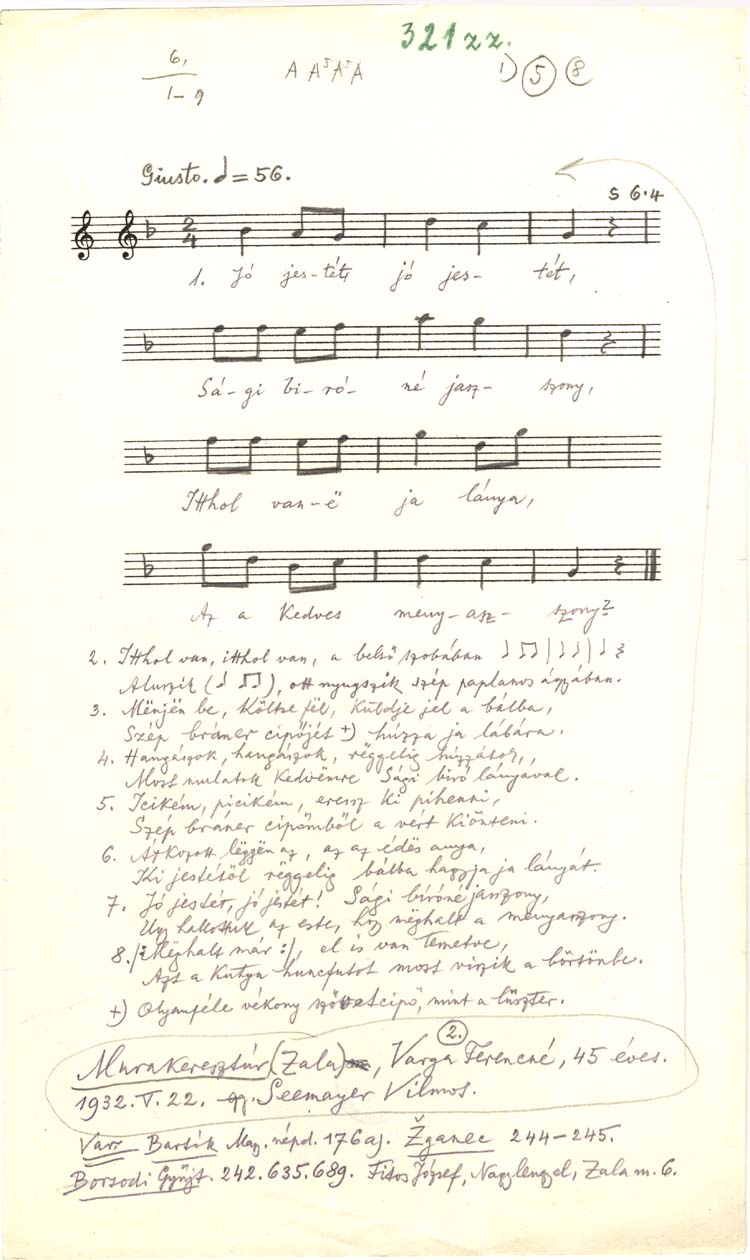 321zz.
6,
1-9
A A⁵ A⁵ A
1) 5 8
Giusto. ♩=56.
S 6·4
2
4
1. Jó jes-tét, jó jes- tét,
Sá-gi bi-ró- né jasz- szony,
Itthol van-ë ja lánya,
Az a kedves meny-asz- szony?
2. Itthol van, itthol van, a belső szobában
Aluszik ( ), ott nyugszik szép paplanos ágyában.
3. Mënjën be, költse fël, küldje jel a bálba,
Szép bráner cipőjét +) húzza ja lábára.
4. Hangászok, hangászok, rëggelig húzzátok,
Most mulatok kedvemre Sági biró lányával.
5. Icikém, picikém, eressz ki pihenni,
Szép bráner cipőmből a vért kiönteni.
6. Átkozott lëgyën az, az az édës anya,
Ki jestétől rëggelig bálba hagyja ja lányát.
7. Jó jestét, jó jestét! Sági bíróné jasszony,
Ugy hallottuk az este, hogy mëghalt a menyasszony.
8. /: Mëghalt már :/, el is van temetve,
Azt a kutya huncfutot most viszik a börtönbe.
+) Olyanféle vékony szövetcipő, mint a lüszter.
2.
Murakeresztúr (Zala), Varga Ferencné, 45 éves.
1932. V. 22. gy. Seemayer Vilmos.
Var: Bartók Mag. népd. 176aj. Žganec 244-245.
Borsodi Gyűjt. 242. 635. 689. Fitos József, Nagylengyel, Zala m. 6.